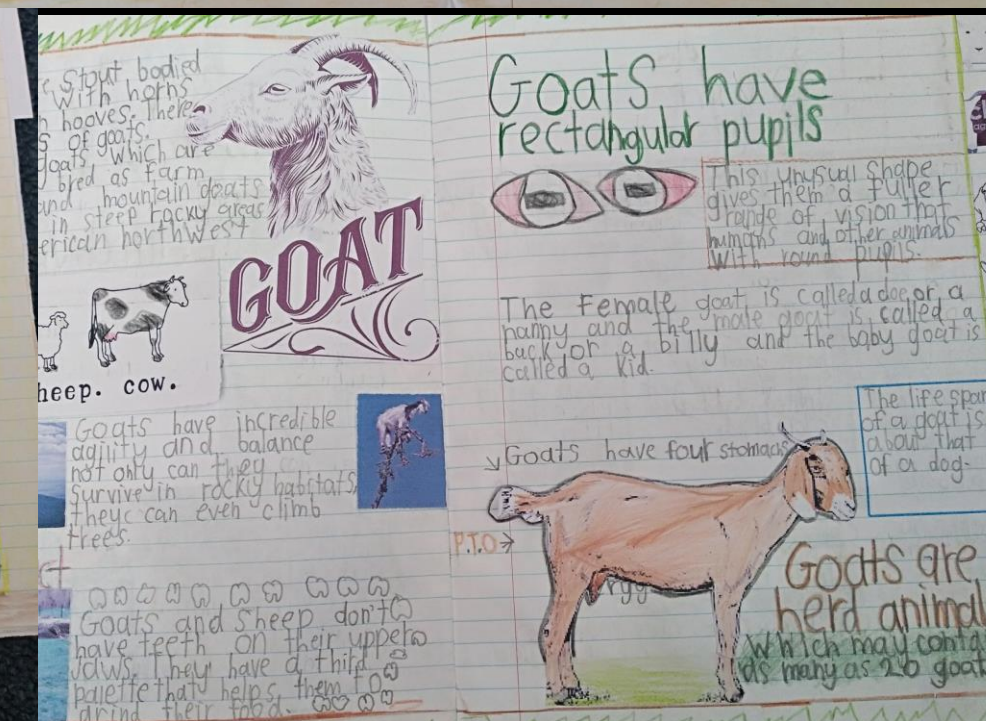 e stout bodied
with horns
hooves. There
s of goats.
goats which are
bred as farm
and mountain goats
in steep rocky areas
erican northwest
GOAT
heep. cow.
Goats have incredible
agility and balance
not only can they
survive in rocky habitats
they can even climb
trees.
Goats and sheep don't
have teeth on their upper
jaws. They have a third
palette that helps them to
grind their food.
Goats have
rectangular pupils
This unusual shape
gives them a fuller
range of vision that
humans and other animals
with round pupils.
The Female goat is called a doe or a
nanny and the male goat is called a
buck or a billy and the baby goat is
called a kid.
The life span
of a goat is
about that
of a dog.
Goats have four stomachs
P.T.O
Goats are
herd animal
which may conta
as many as 20 goat